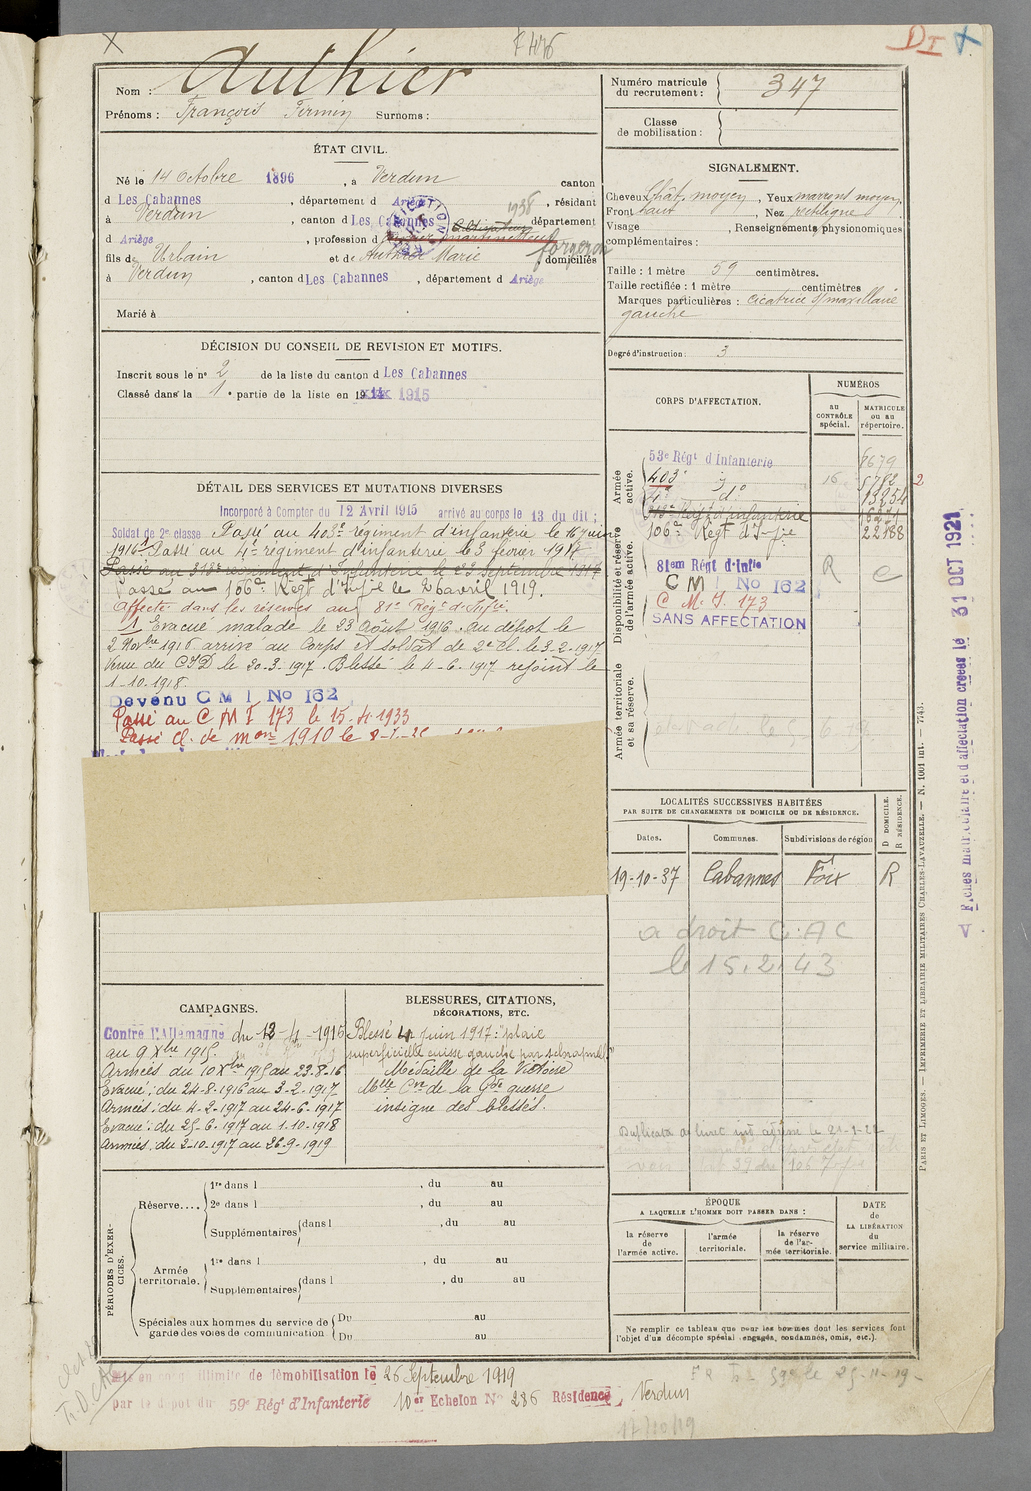 F 476
DI
Nom : Authier
Prénoms : François Firmin Surnoms :
Numéro matricule du recrutement : 347
Classe de mobilisation :
ÉTAT CIVIL.
Né le 14 Octobre 1896, à Verdun canton
d Les Cabannes, département d Ariège, résidant
à Verdun, canton d Les Cabannes département
d Ariège, profession d Cultivateur 1938 forgeron
fils de Urbain et de Authier Marie, domiciliés
à Verdun, canton d Les Cabannes, département d Ariège
Marié à
SIGNALEMENT.
Cheveux Chât. moyen, Yeux marrons moyen,
Front haut, Nez rectiligne
Visage, Renseignements physionomiques
complémentaires :
Taille : 1 mètre 59 centimètres.
Taille rectifiée : 1 mètre centimètres
Marques particulières : cicatrice s/ maxillaire
gauche
Degré d'instruction : 3
DÉCISION DU CONSEIL DE REVISION ET MOTIFS.
Inscrit sous le n° 2 de la liste du canton d Les Cabannes
Classé dans la 1e partie de la liste en 1914 1915
DÉTAIL DES SERVICES ET MUTATIONS DIVERSES
Incorporé à Compter du 12 Avril 1915 arrivé au corps le 13 du dit ;
Soldat de 2e classe Passé au 403e régiment d'infanterie le 16 juin
1916 Passé au 4e régiment d'infanterie le 3 février 1917
Passé au 318e régiment d'Infanterie le 23 septembre 1917
Passé au 106e Régt d'Inf.ie le 26 avril 1919.
Affecté dans les réserves au 81e Régt d'Inf.ie.
1 Évacué malade le 23 Août 1916. Au dépôt le
2 Novbre 1916 arrivé au Corps et soldat de 2e Cl. le 3-2-1917
Venu du CID le 20-3-1917. Blessé le 4-6-1917 rejoint le
1-10-1918.
Devenu C M I No 162
Passé au C M I 173 le 15-4-1933
Passé cl. de mon 1910 le
CORPS D'AFFECTATION.
NUMÉROS
au CONTRÔLE spécial.
MATRICULE ou au répertoire.
Armée active.
53e Régt d'Infanterie 8679
403e do 16 5782
4e do
318e Régt d'infanterie 16271
Disponibilité et réserve de l'armée active.
106e Régt d'Infie 22188
81em Régt d'Infie R
C M I No 162
C M I. 173
SANS AFFECTATION
Armée territoriale et sa réserve.
Fiches matriculaire et d'affectation créées le 31 OCT 1921
LOCALITÉS SUCCESSIVES HABITÉES
PAR SUITE DE CHANGEMENTS DE DOMICILE OU DE RÉSIDENCE.
Dates. Communes. Subdivisions de région D DOMICILE. R RÉSIDENCE.
19-10-37 Cabannes Foix R
a droit C.A C
le 15.2.43
CAMPAGNES.
Contre l'Allemagne du 12-4-1915
au 9 Xbre 1915.
Armées du 10 Xbre 1915 au 23-8-16
Évacué : du 24-8-1916 au 3-2-1917
Armées : du 4-2-1917 au 24-6-1917
Évacué : du 25-6-1917 au 1-10-1918
Armées. du 2-10-1917 au 26-9-1919
BLESSURES, CITATIONS,
DÉCORATIONS, ETC.
Blessé 4 juin 1917 : "plaie
superficielle cuisse gauche par schrapnell"
Médaille de la Victoire
Mlle Cve de la Gde guerre
insigne des blessés.
Duplicata du livret ind. adressé le 21-1-22
PÉRIODES D'EXERCICES.
Réserve....
1re dans l , du au
2e dans l , du au
Supplémentaires dans l , du au
Armée territoriale.
1re dans l , du au
Supplémentaires dans l , du au
Spéciales aux hommes du service de garde des voies de communication
Du au
Du au
ÉPOQUE
A LAQUELLE L'HOMME DOIT PASSER DANS :
la réserve de l'armée active.
l'armée territoriale.
la réserve de l'armée territoriale.
DATE de LA LIBÉRATION du service militaire.
Ne remplir ce tableau que pour les hommes dont les services font
l'objet d'un décompte spécial (engagés, condamnés, omis, etc.).
PARIS ET LIMOGES. — IMPRIMERIE ET LIBRAIRIE MILITAIRES CHARLES-LAVAUZELLE. — N. 1001 int. — 7743.
Mis en congé illimité de démobilisation le 26 Septembre 1919
par le dépôt du 59e Régt d'Infanterie 10er Echelon No 286 Résidence Verdun
17/10/19